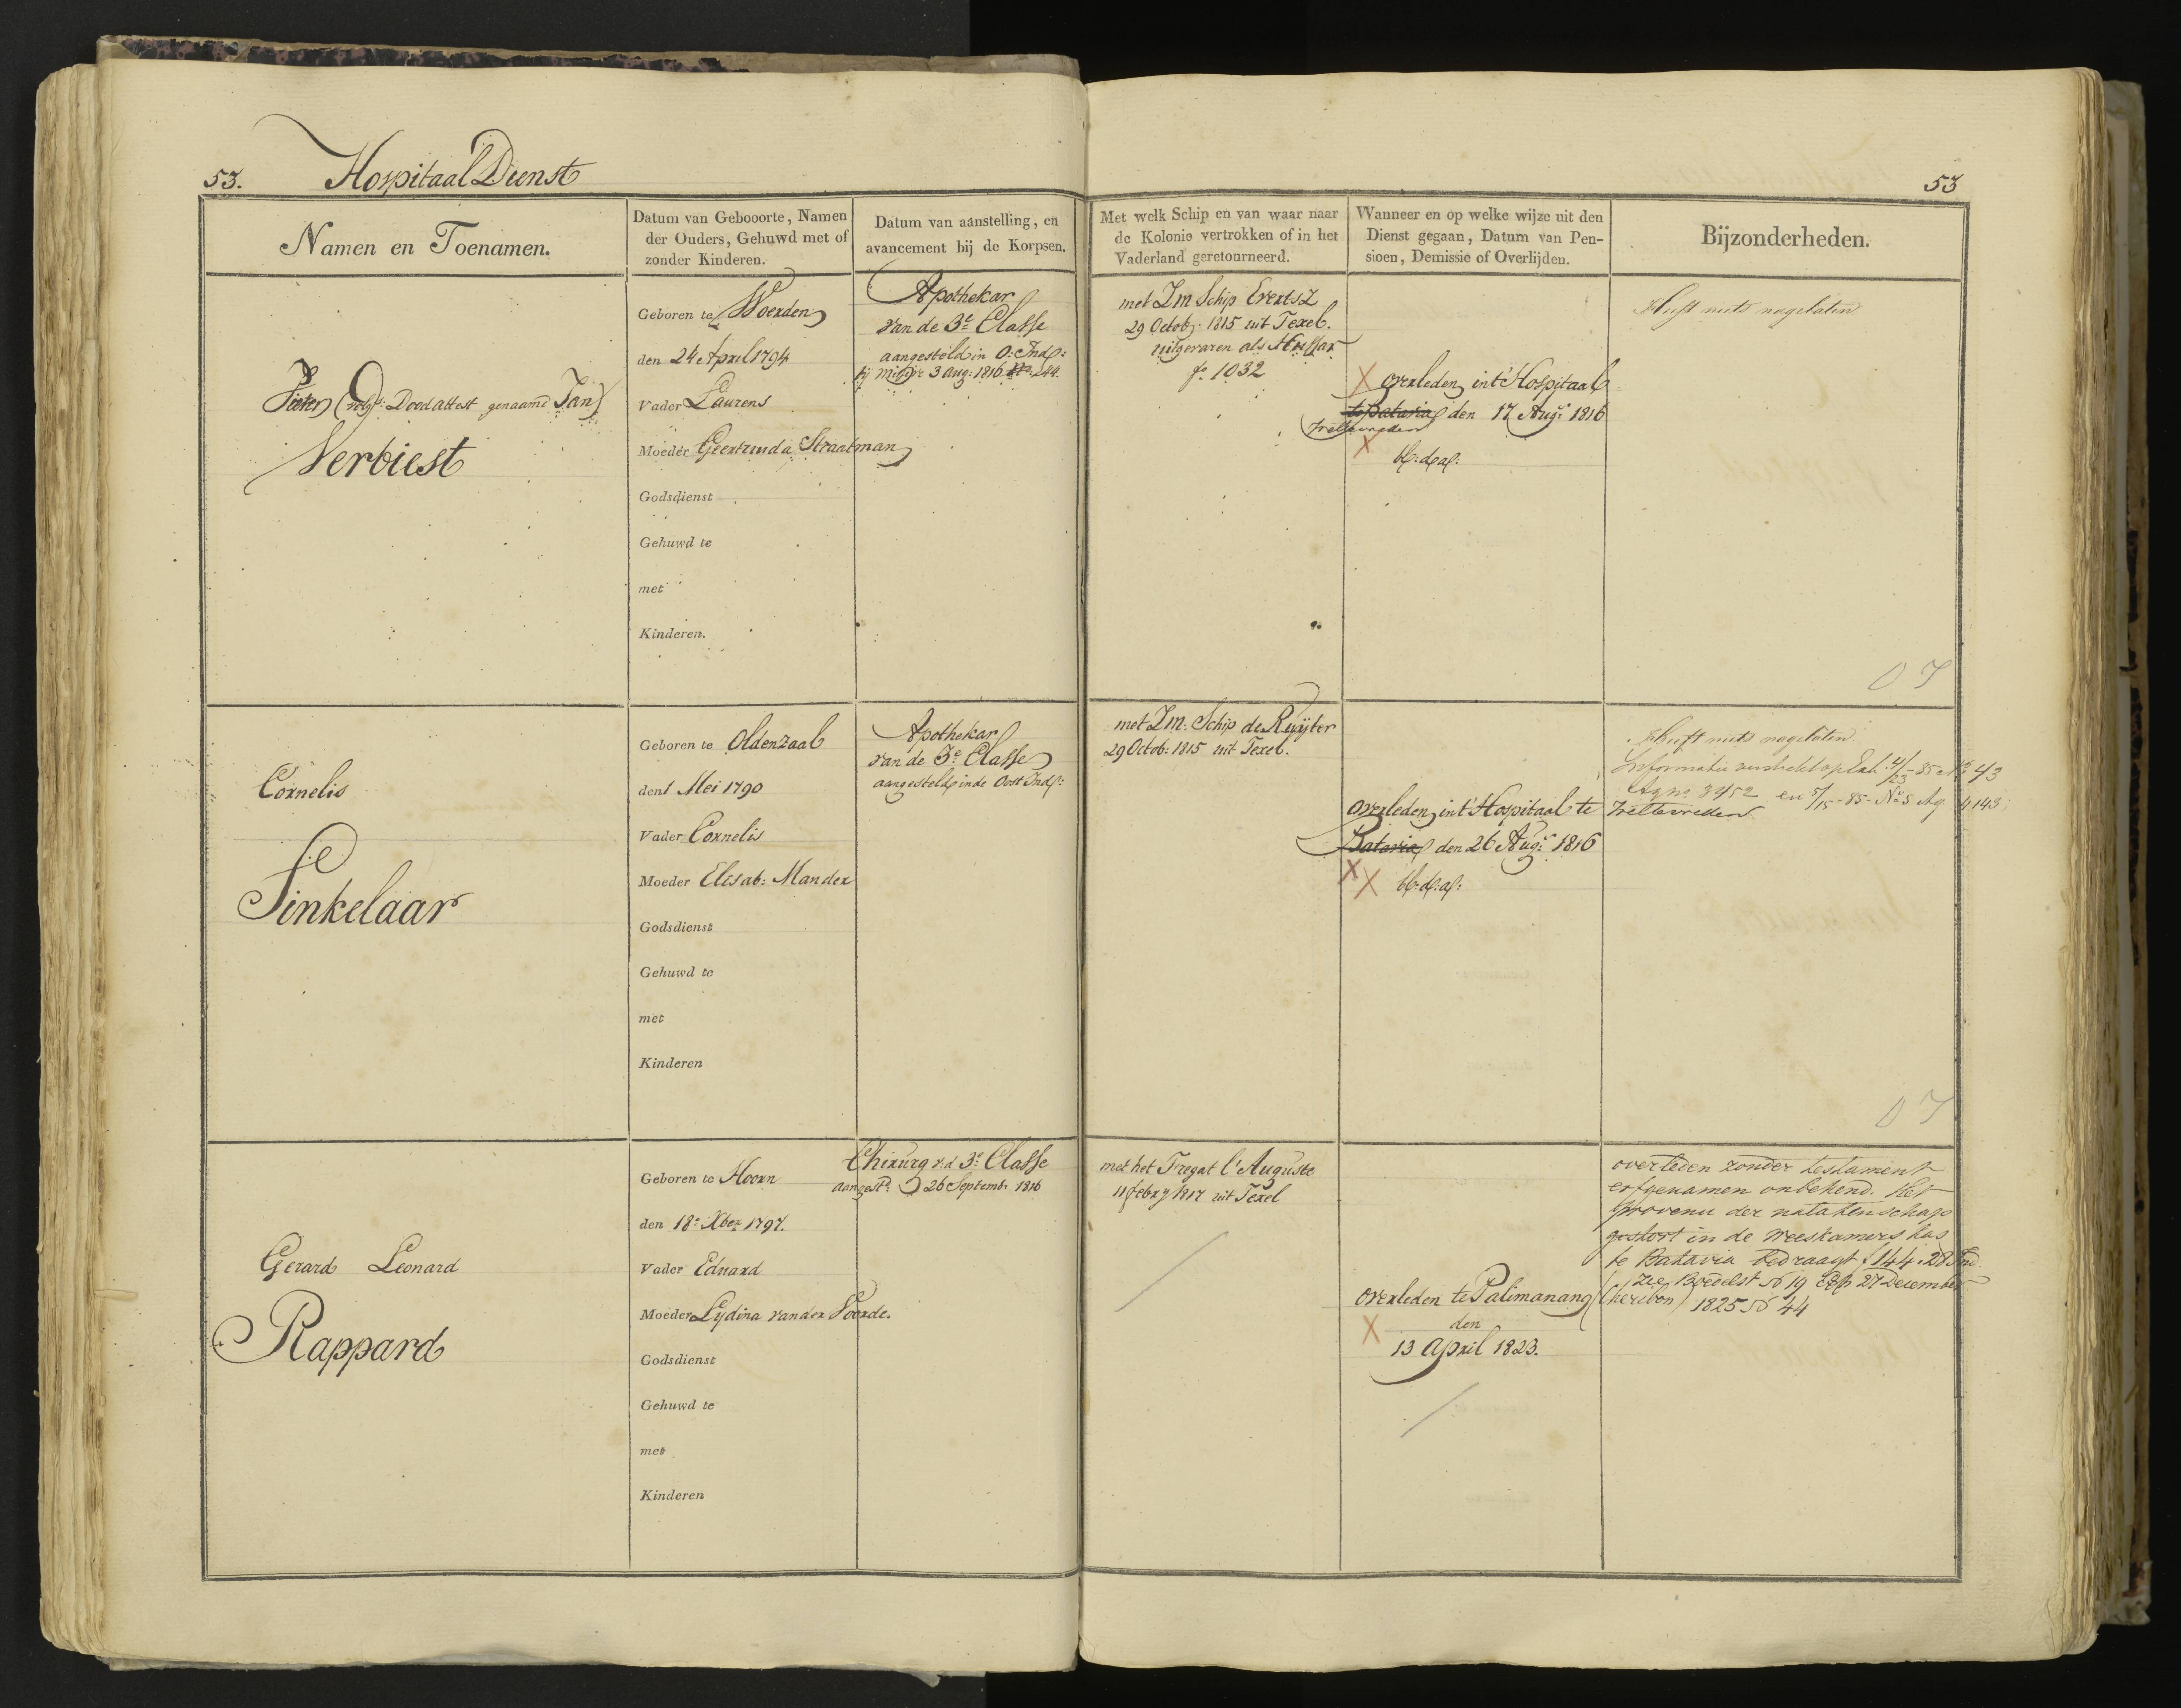 53. Hospitaal Dienst
53
Namen en Toenamen.
Datum van Gebooorte, Namen
der Ouders, Gehuwd met of
zonder Kinderen.
Datum van aanstelling, en
avancement bij de Korpsen.
Met welk Schip en van waar naar
de Kolonie vertrokken of in het
Vaderland geretourneerd.
Wanneer en op welke wijze uit den
Dienst gegaan, Datum van Pen-
sioen, Demissie of Overlijden.
Bijzonderheden.
Pieter (volgs: Doodattest genaamd Jan)
Verbiest
Geboren te Woerden
den 24 April 1794
Vader Laurens
Moeder Geertruida Straatman
Godsdienst
Gehuwd te
met
Kinderen.
Apothekar
van de 3e Classe
aangesteld in O: Ind:
3 Aug: 1816 244.
met Zm Schip Evertsz
29 Octobr. 1815 uit Texel.
uitgevaren als Hussar
fo 1032
overleden int Hospitaal
te Batavia den 17 Augs 1816
Weltevreden
Heeft niets nagelaten
Cornelis
Finkelaar
Geboren te Oldenzaal
den 1 Mei 1790
Vader Cornelis
Moeder Elisab: Mander
Godsdienst
Gehuwd te
met
Kinderen
Apothekar
van de 3e Classe
aangesteld in de Oost Ind:
met Zm. Schip de Ruijter
29 Octob: 1815 uit Texel.
overleden int Hospitaal te Weltevreden
Batavia den 26 Augs 1816
Heeft niets nagelaten
Informatie verstrekt op Exh: 4/23-85 No 43
Ag no 3452 en 5/15-85-No 5 Ag. 4143
Gerard Leonard
Rappard
Geboren te Hoorn
den 18e Xber 1797.
Vader Eduard
Moeder Lydina van der Voorde.
Godsdienst
Gehuwd te
met
Kinderen
Chirurg v.d. 3e Classe
aangest: 26 Septemb. 1816
met het Fregat l'Auguste
11 febry 1817 uit Texel
overleden te Palimanang (Cheribon)
den
13 April 1823.
overleden zonder testament
erfgenamen onbekend. Het
provenu der nalatenschap
gestort in de weeskamers kas
te Batavia bedraagt f 144.28 Ind.
Zie Boedelst No 19 27 December
1825 No 44